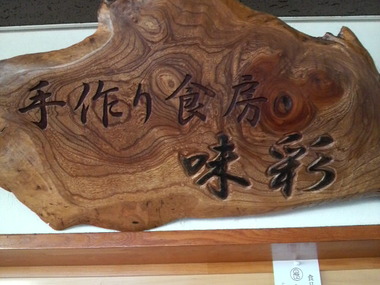 手作り食房
味彩